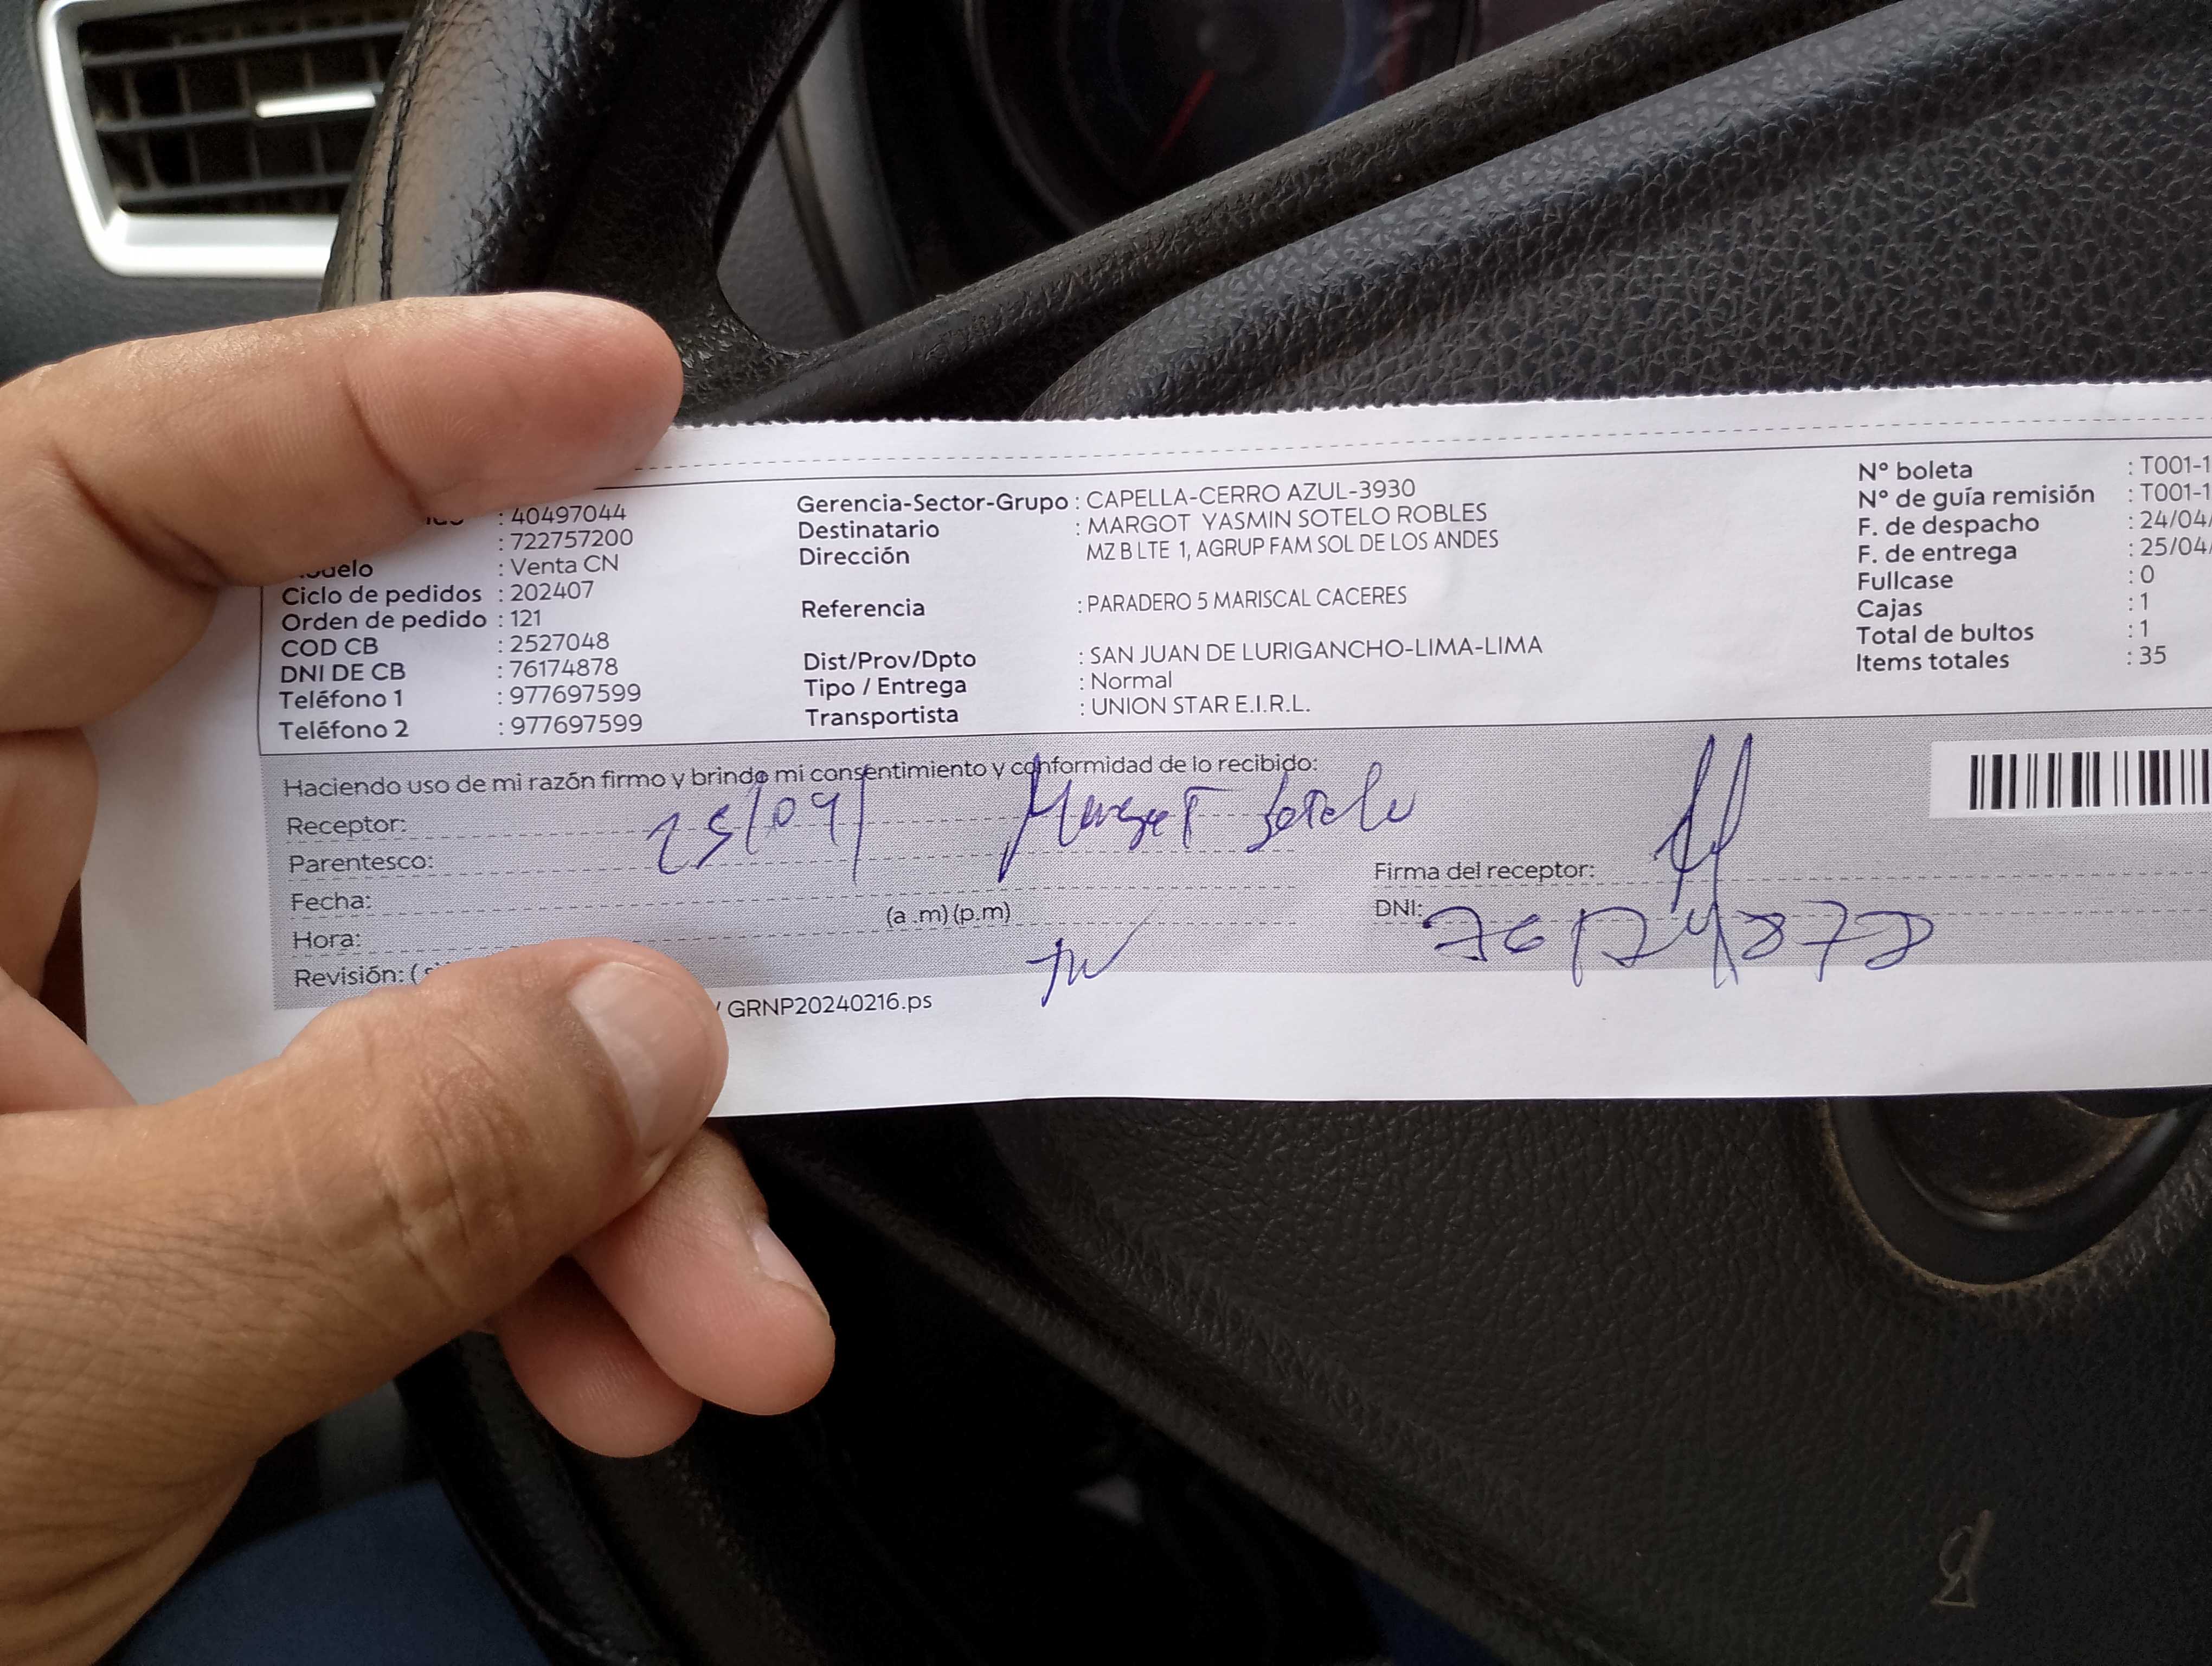 : 40497044
: 722757200
: Venta CN
Ciclo de pedidos : 202407
Orden de pedido : 121
COD CB : 2527048
DNI DE CB : 76174878
Teléfono 1 : 977697599
Teléfono 2 : 977697599
Gerencia-Sector-Grupo : CAPELLA-CERRO AZUL-3930
Destinatario : MARGOT YASMIN SOTELO ROBLES
Dirección MZ B LTE 1, AGRUP FAM SOL DE LOS ANDES
Referencia : PARADERO 5 MARISCAL CACERES
Dist/Prov/Dpto : SAN JUAN DE LURIGANCHO-LIMA-LIMA
Tipo / Entrega : Normal
Transportista : UNION STAR E.I.R.L.
Nº boleta : T001-1
Nº de guía remisión : T001-1
F. de despacho : 24/04/
F. de entrega : 25/04/
Fullcase : 0
Cajas : 1
Total de bultos : 1
Items totales : 35
Haciendo uso de mi razón firmo y brindo mi consentimiento y conformidad de lo recibido:
Receptor: 25/04/ Margot Sotelo
Parentesco:
Fecha:
Hora: (a .m) (p.m)
Revisión: (
Firma del receptor:
DNI: 76174878
GRNP20240216.ps